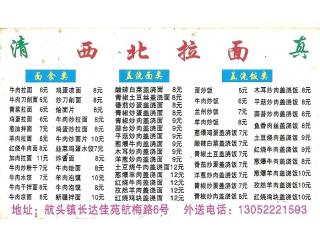 清 西北拉面 真
面食类
牛肉拉面 6元 鸡蛋凉面 8元
牛肉刀削面 6元 炒刀削面 8元
青菜拉面 5元 烩面片 8元
鸡蛋拉面 6元 牛肉炒面 8元
牛肉拉面 6元 牛肉炒拉面 8元
葱油拌面 7元 鸡蛋炒面 8元
羊肉拉面 8元 羊肉炒面片 10元
红烧牛肉面 8元
加肉拉面 11元 炸酱面 8元
牛肉炒粉干 7元 牛肉烩面 8元
牛肉炒面 7元 羊肉泡馍 8元
牛肉干拌面 8元 羊肉泡馍 8元
牛肉凉面 8元 新疆拌面 10元
盖浇面类
酸辣白菜盖浇面 8元
青椒土豆丝盖浇面 8元
番茄炒蛋盖浇面 8元
青椒炒蛋盖浇面 8元
麻辣豆腐盖浇面 9元
蒜台炒肉盖浇面 9元
青椒炒肉盖浇面 9元
葱爆牛肉盖浇面 9元
红烧牛肉盖浇面 10元
葱爆羊肉盖浇面 12元
孜然羊肉盖浇面 12元
红烧鸡块盖浇面 12元
盖浇饭类
蛋炒饭 6元 木耳炒肉盖浇饭 8元
牛肉炒饭 6元 平菇炒肉盖浇饭 8元
兰州炒饭 7元 蒜苔炒肉盖浇饭 8元
羊肉炒饭 8元 鱼香肉丝盖浇饭 8元
葱爆鸡蛋盖浇饭 7元 麻辣豆腐盖浇饭 8元
青椒土豆盖浇饭 7元 葱爆牛肉盖浇饭 8元
青椒炒蛋盖浇饭 7元 红烧牛肉盖浇饭 9元
番茄炒蛋盖浇饭 7元 葱爆羊肉盖浇饭 10元
酸辣白菜盖浇饭 7元 孜然羊肉盖浇饭 10元
青椒炒肉盖浇饭 8元 红烧鸡块盖浇饭 10元
地址：航头镇长达佳苑航梅路6号 外送电话：13052221593